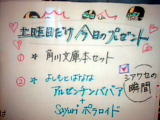 土曜日だけ、今日のプレゼント
① 角川文庫本セット
② よしもとばなな
アルゼンチンババア
+
Sayuri ポラロイド
シアワセの
瞬間